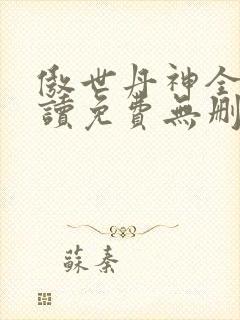 傲世丹神全
讀免費無刪
蘇秦